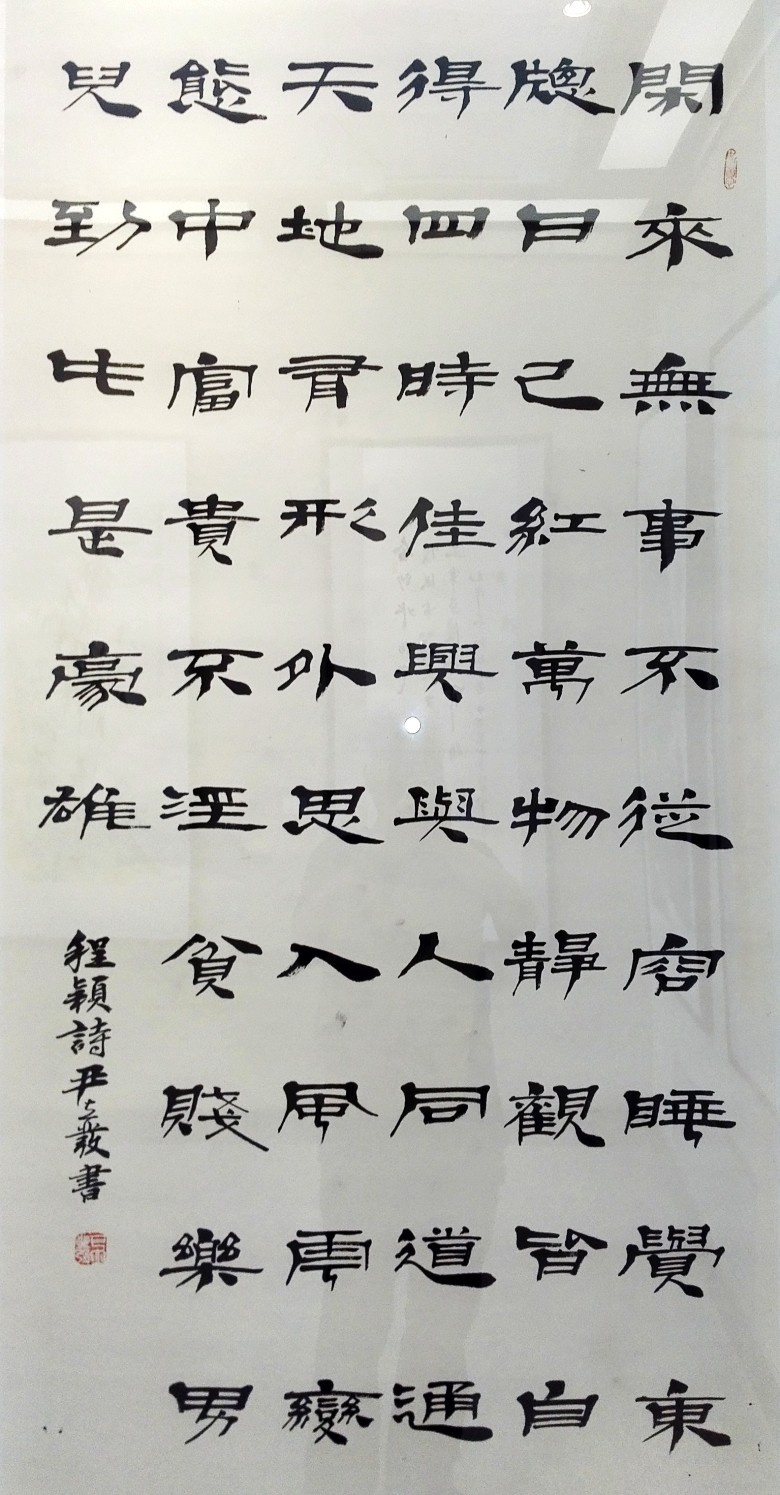 閑來無事不從容睡覺東
牕日已紅萬物靜觀皆自
得四時佳興與人同道通
天地有形外思入風雲變
態中富貴不淫貧賤樂男
兒到此是豪雄
程穎詩尹書